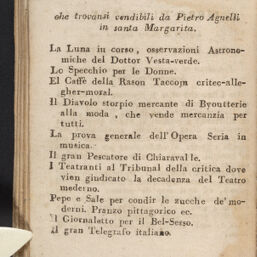 che trovansi vendibili da Pietro Agnelli
in santa Margarita.
La Luna in corso, osservazioni Astrono-
miche del Dottor Vesta-verde.
Lo Specchio per le Donne.
El Caffè della Rason Taccoin critec-alle-
gher-moral.
Il Diavolo storpio mercante di Byoutterie
alla moda, che vende mercanzia per
tutti.
La prova generale dell'Opera Seria in
musica.
Il gran Pescatore di Chiaravalle.
I Teatranti al Tribunal della critica dove
vien giudicato la decadenza del Teatro
mederno.
Pepe e Sale per condir le zucche de' mo-
derni. Pranzo pittagorico ec.
Il Giornaletto per il Bel-Serso.
Il gran Telegrafo italiano.